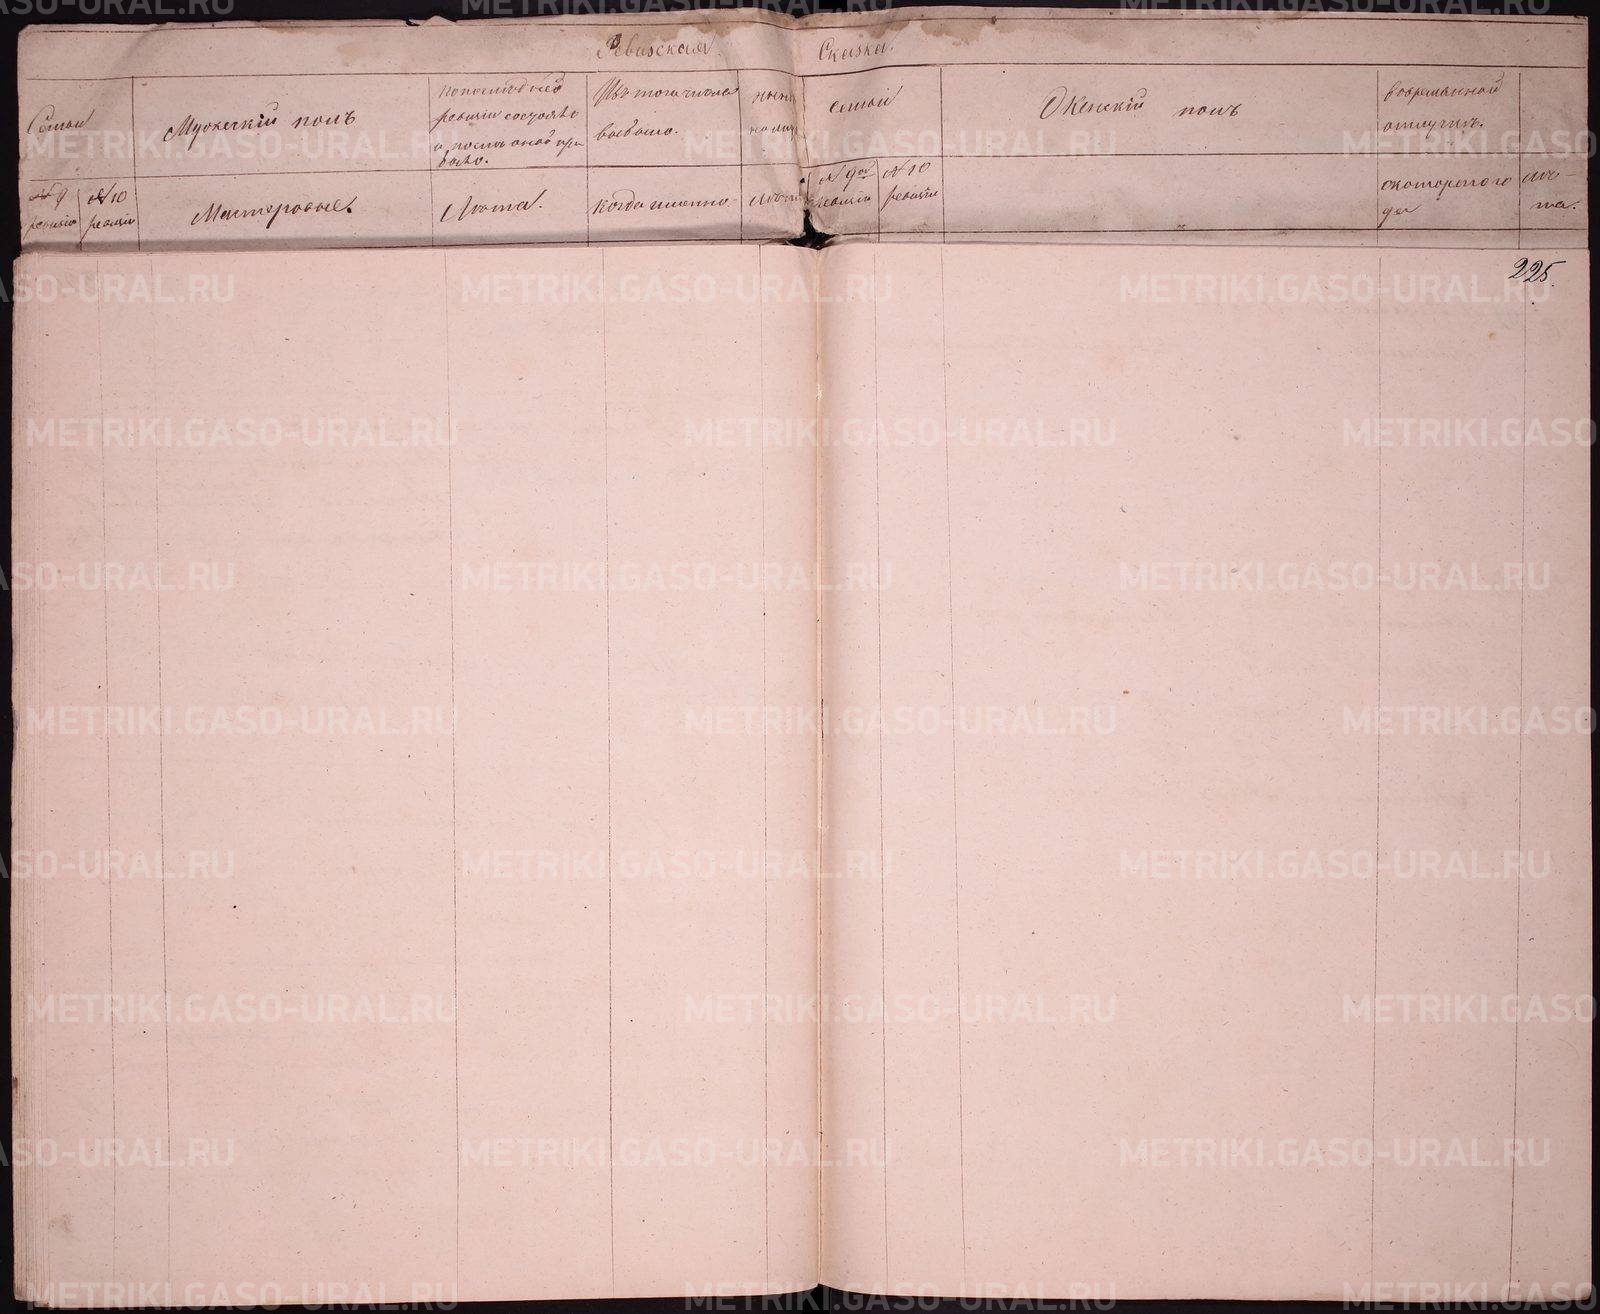 Ревизская Сказка.
Семьи
Мужескій полъ
По последней
ревизіи состояло
и послѣ оной при
было.
Изъ того числа
выбыло.
ныне
на лицо
семьи
Женскій полъ
во временной
отлучкѣ.
№ 9
ревизіи
№ 10
ревизіи
Мастеровые.
Лѣта.
Когда именно
лѣта
№ 9ой
ревизіи
№ 10
ревизіи
съ котораго го
да
лѣ-
та.
225.
METRIKI.GASO-URAL.RU